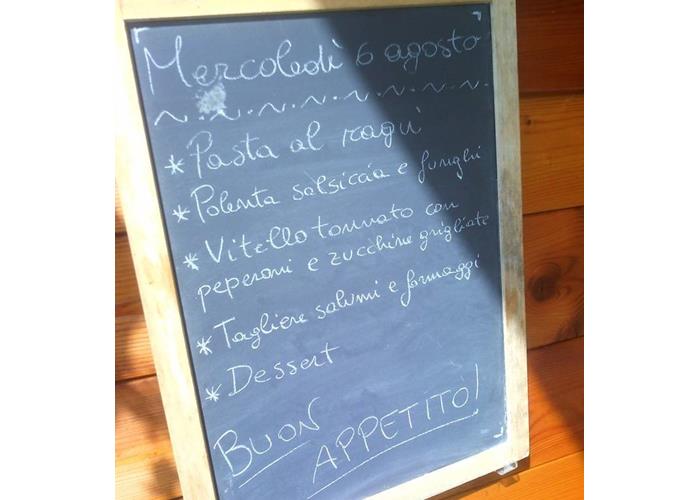 Mercoledì 6 agosto
* Pasta al ragù
* Polenta salsiccia e funghi
* Vitello tonnato con
peperoni e zucchine grigliate
* Tagliere salumi e formaggi
* Dessert
BUON
APPETITO!